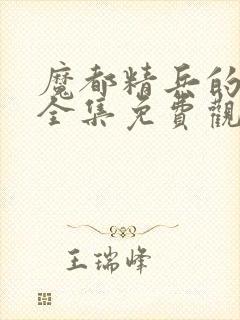 魔都精兵的
全集免費觀
王瑞峰